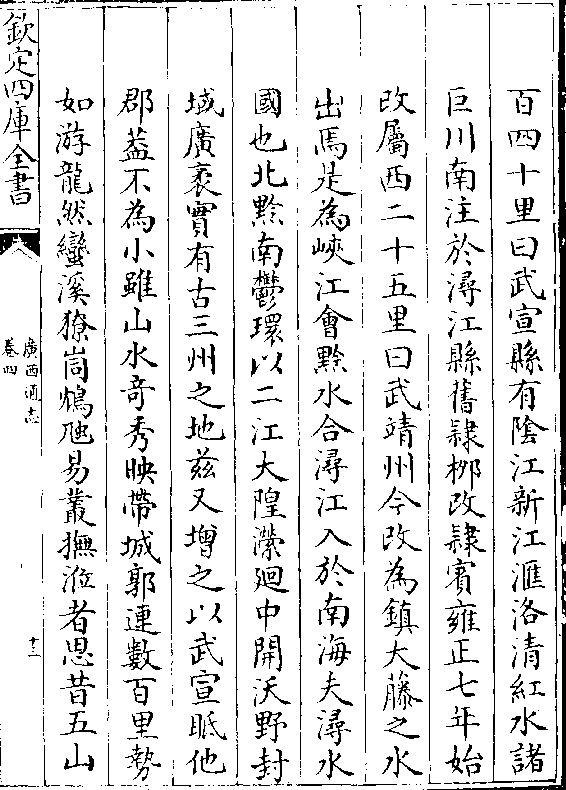 百四十里曰武宣縣有陰江新江滙洛清紅水諸
巨川南注於潯江縣舊隸栁改隸賓雍正七年始
改屬西二十五里曰武靖州今改為鎮大藤之水
出焉是為峽江會黔水合潯江入於南海夫潯水
國也北黔南鬱環以二江大隍瀠廻中開沃野封
域廣袤實有古三州之地兹又增之以武宣眡他
郡葢不為小雖山水奇秀映帶城郭連數百里勢
如游龍然蠻溪獠峝鴂虺易叢撫涖者思昔五山
欽定四庫全書
廣西通志
卷四
十二